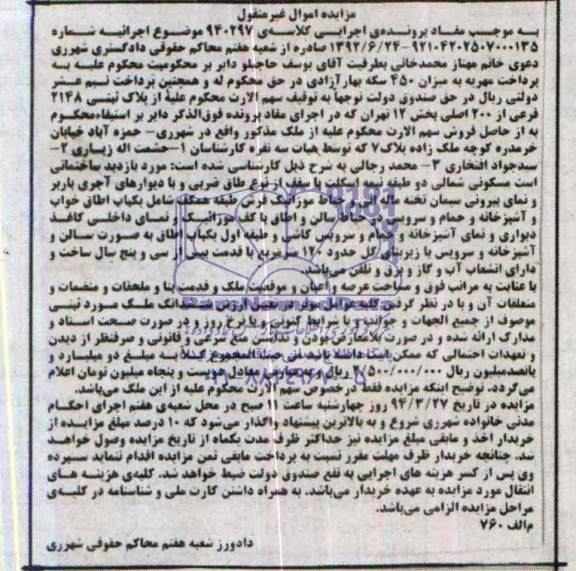 مزایده اموال غیرمنقول
به موجب مفاد پرونده‌ی اجرایی کلاسه‌ی ۹۴۰۲۹۷ موضوع اجرائیه شماره
۹۲۱۰۴۲۰۲۵۰۷۰۰۰۱۳۵-۱۳۹۲/۶/۲۴ صادره از شعبه هفتم محاکم حقوقی دادگستری شهرری
دعوی خانم مهناز محمدخانی بطرفیت آقای یوسف حاجیلو دایر بر محکومیت محکوم علیه به
پرداخت مهریه به میزان ۴۵۰ سکه بهارآزادی در حق محکوم له و همچنین پرداخت نیم عشر
دولتی ریال در حق صندوق دولت توجهاً به توقیف سهم الارث محکوم علیه از پلاک ثبتی ۲۱۴۸
فرعی از ۲۰۰ اصلی بخش ۱۲ تهران که در اجرای مفاد پرونده فوق‌الذکر دایر بر استیفاءمحکوم
به از حاصل فروش سهم الارث محکوم علیه از ملک مذکور واقع در شهرری- حمزه آباد خیابان
خرمدره کوچه ملک زاده پلاک۷ که توسط هیات سه نفره کارشناسان ۱-حشمت اله زیباری ۲-
سیدجواد افتخاری ۳- محمد رجالی به شرح ذیل کارشناسی شده است: مورد بازدید ساختمانی
است مسکونی شمالی دو طبقه نیمه اسکلت با سقف از نوع طاق ضربی و با دیوارهای آجری باربر
و نمای بیرونی سیمان تخته ماله ای با حیاط موزائیک فرش طبقه همکف شامل یکباب اطاق خواب
و آشپزخانه و حمام و سرویس در حیاط سالن و اطاق با کف موزائیک و نمای داخلی کاغذ
دیواری و نمای آشپزخانه و حمام و سرویس کاشی و طبقه اول یکباب اطاق به صورت سالن و
آشپزخانه و سرویس با زیربنای کل حدود ۱۲۰ مترمربع با قدمت بیش از سی و پنج سال ساخت و
دارای انشعاب آب و گاز و برق و تلفن می‌باشد.
با عنایت به مراتب فوق و مساحت عرصه و اعیان و موقعیت ملک و قدمت بنا و ملحقات و منضمات و
متعلقات آن و با در نظر گرفتن کلیه عوامل موثر در تعیین ارزش ششدانگ ملک مورد ثبتی
موصوف از جمیع الجهات و جوانب و با شرایط کنونی و با نرخ روز و در صورت صحت اسناد و
مدارک ارائه شده و در صورت بلامعارض بودن و نداشتن منع شرعی و قانونی و صرفنظر از دیدن
و تعهدات احتمالی که ممکن است داشته باشد من حیث المجموع کلاً به مبلغ دو میلیارد و
پانصدمیلیون ریال ۲/۵۰۰/۰۰۰/۰۰۰ ریال و به عبارتی معادل دویست و پنجاه میلیون تومان اعلام
می‌گردد. توضیح اینکه مزایده فقط در خصوص سهم الارث محکوم علیه از این ملک می‌باشد.
مزایده در تاریخ ۹۴/۳/۲۷ روز چهارشنبه ساعت ۱۱ صبح در محل شعبه‌ی هفتم اجرای احکام
مدنی خانواده شهرری شروع و به بالاترین پیشنهاد واگذار می‌شود که ۱۰ درصد مبلغ مزایده از
خریدار اخذ و مابقی مبلغ مزایده نیز حداکثر ظرف مدت یکماه از تاریخ مزایده وصول خواهد
شد. چنانچه خریدار ظرف مهلت مقرر نسبت به پرداخت مابقی ثمن مزایده اقدام ننماید سپرده
وی پس از کسر هزینه های اجرایی به نفع صندوق دولت ضبط خواهد شد. کلیه‌ی هزینه های
انتقال مورد مزایده به عهده خریدار می‌باشد. به همراه داشتن کارت ملی و شناسنامه در کلیه‌ی
مراحل مزایده الزامی می‌باشد.
م‌الف ۷۶۰
دادورز شعبه هفتم محاکم حقوقی شهرری